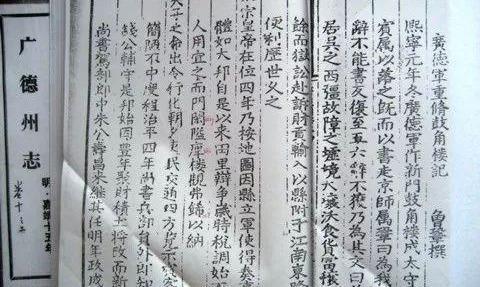 廣德軍重修鼓角樓記 曾鞏撰
熙寧元年冬廣德軍作新門鼓角樓成太守
賓属以落之既而以書走京師属鞏曰為我
辭不能書反復至五六辭不獲乃為其文曰
居吳之西疆故障之墟境大壤沃食貨富穰
餘而獄訟赴訴財貢輸入以縣附于江南東路
便利歷世久之
宗皇帝在位四年乃按地圖因縣立軍使得奏事
體如大邦自是以來田里辯爭歲時稅調始
人用宜之而門閎隘庳樓觀弗飾以納
天子之命出令行化朝夕吏民交通四方覽示賓客
簡陋不中度程治平四年尚書兵部員外郎知
錢公輔守是邦始因豊年聚財積土將改而新
尚書駕部郎中朱公壽昌来継其任明年政成
广德州志
明·嘉靖十五年
卷十